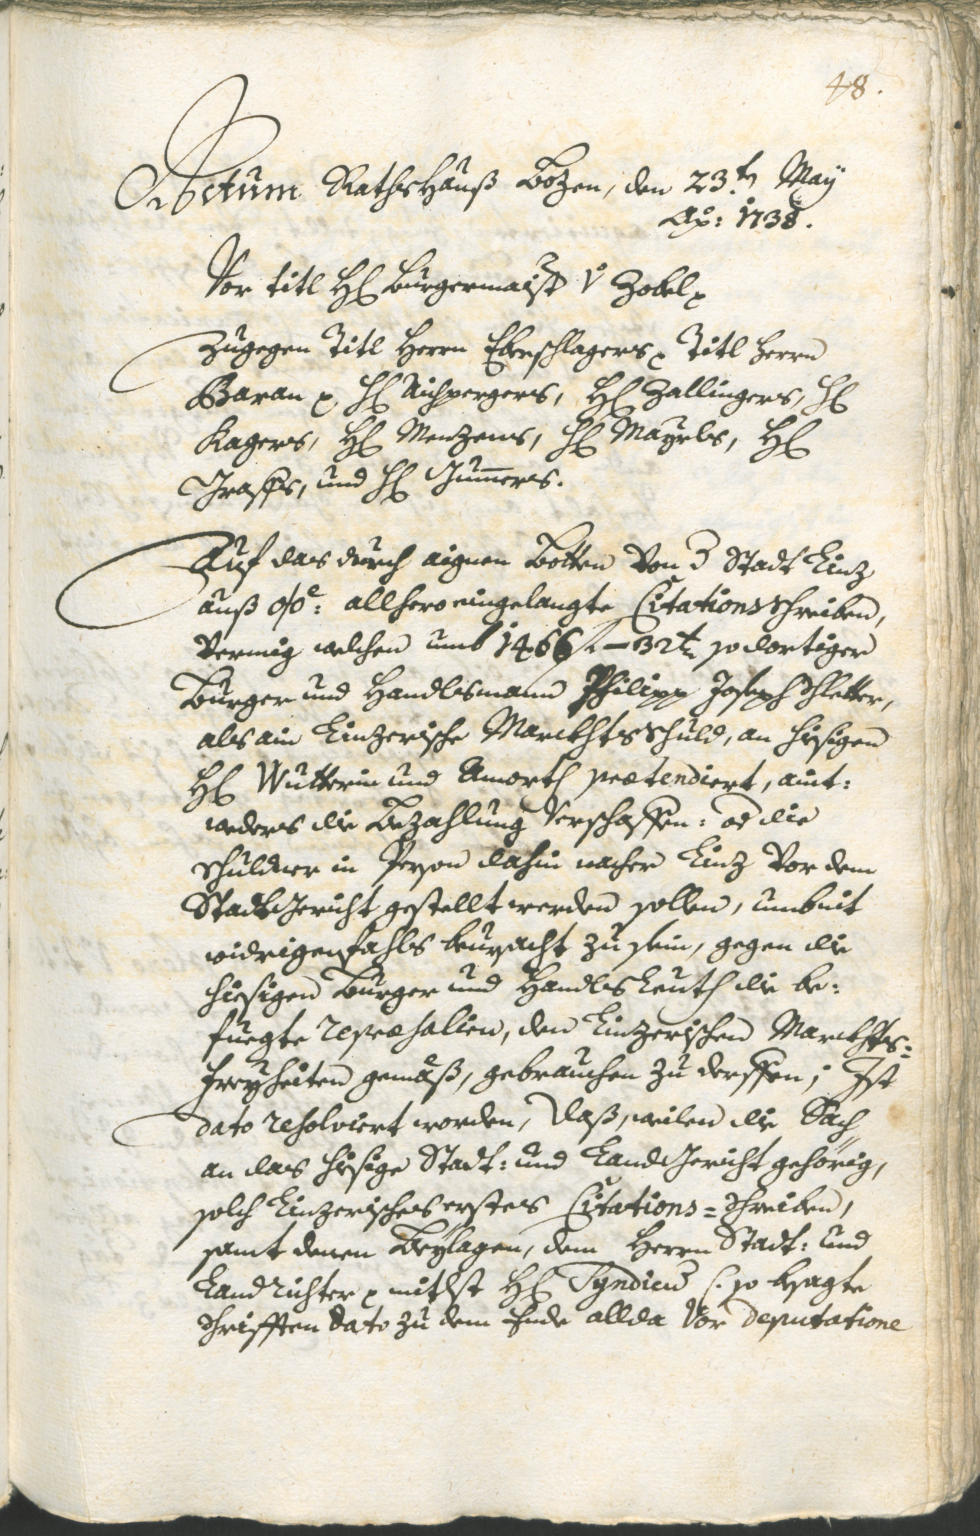 48.
Actum Rathshauß Bozen, den 23.t May
Ao: 1738.
Vor titl H: Burgermaistr v Zobel p
Zugegen Titl Herrn Eberschlagers p Titl Herrn
Baran p H: Aichpergers, H: Zallingers, H:
Kagers, H: Menzens, H: Mayrls, H:
Graffs, und H: Gumers.
Auf das durch aignen Botten von d Stadt Linz
auß o/oe: allhero eingelangte Citationsschreiben,
vermig welchen umb 1466 f – 32 x so dortiger
Burger und Handlsmann Philipp Joseph
als ain Linzerische Marckhtsschuld, an hisigen
H: Wutterin und Amorth praetendiert, aint:
weders die Bezahlung verschaffen: od die
schuldner in Person dahin nacher Linz vor dem
Stadtgericht gestellt werden sollen, umb nit
widrigenfahls bemacht zu sein, gegen die
hiesigen Burger und Handlsleuth die be:
fuegte repraesalien, den Linzerischen Marckhts=
freyheiten gemäß, gebrauchen zu derffen; Ist
dato resolviert worden, daß, weilen die Sach
an das hisige Stadt: und Landgericht gehörig,
solch Linzerisches erstes Citations=schreiben,
samt denen Beylagen, dem Herrn Stadt: und
Landrichter p mitlst H: Syndicus (: so besagte
schrifften dato zu dem Ende allda vor deputatione